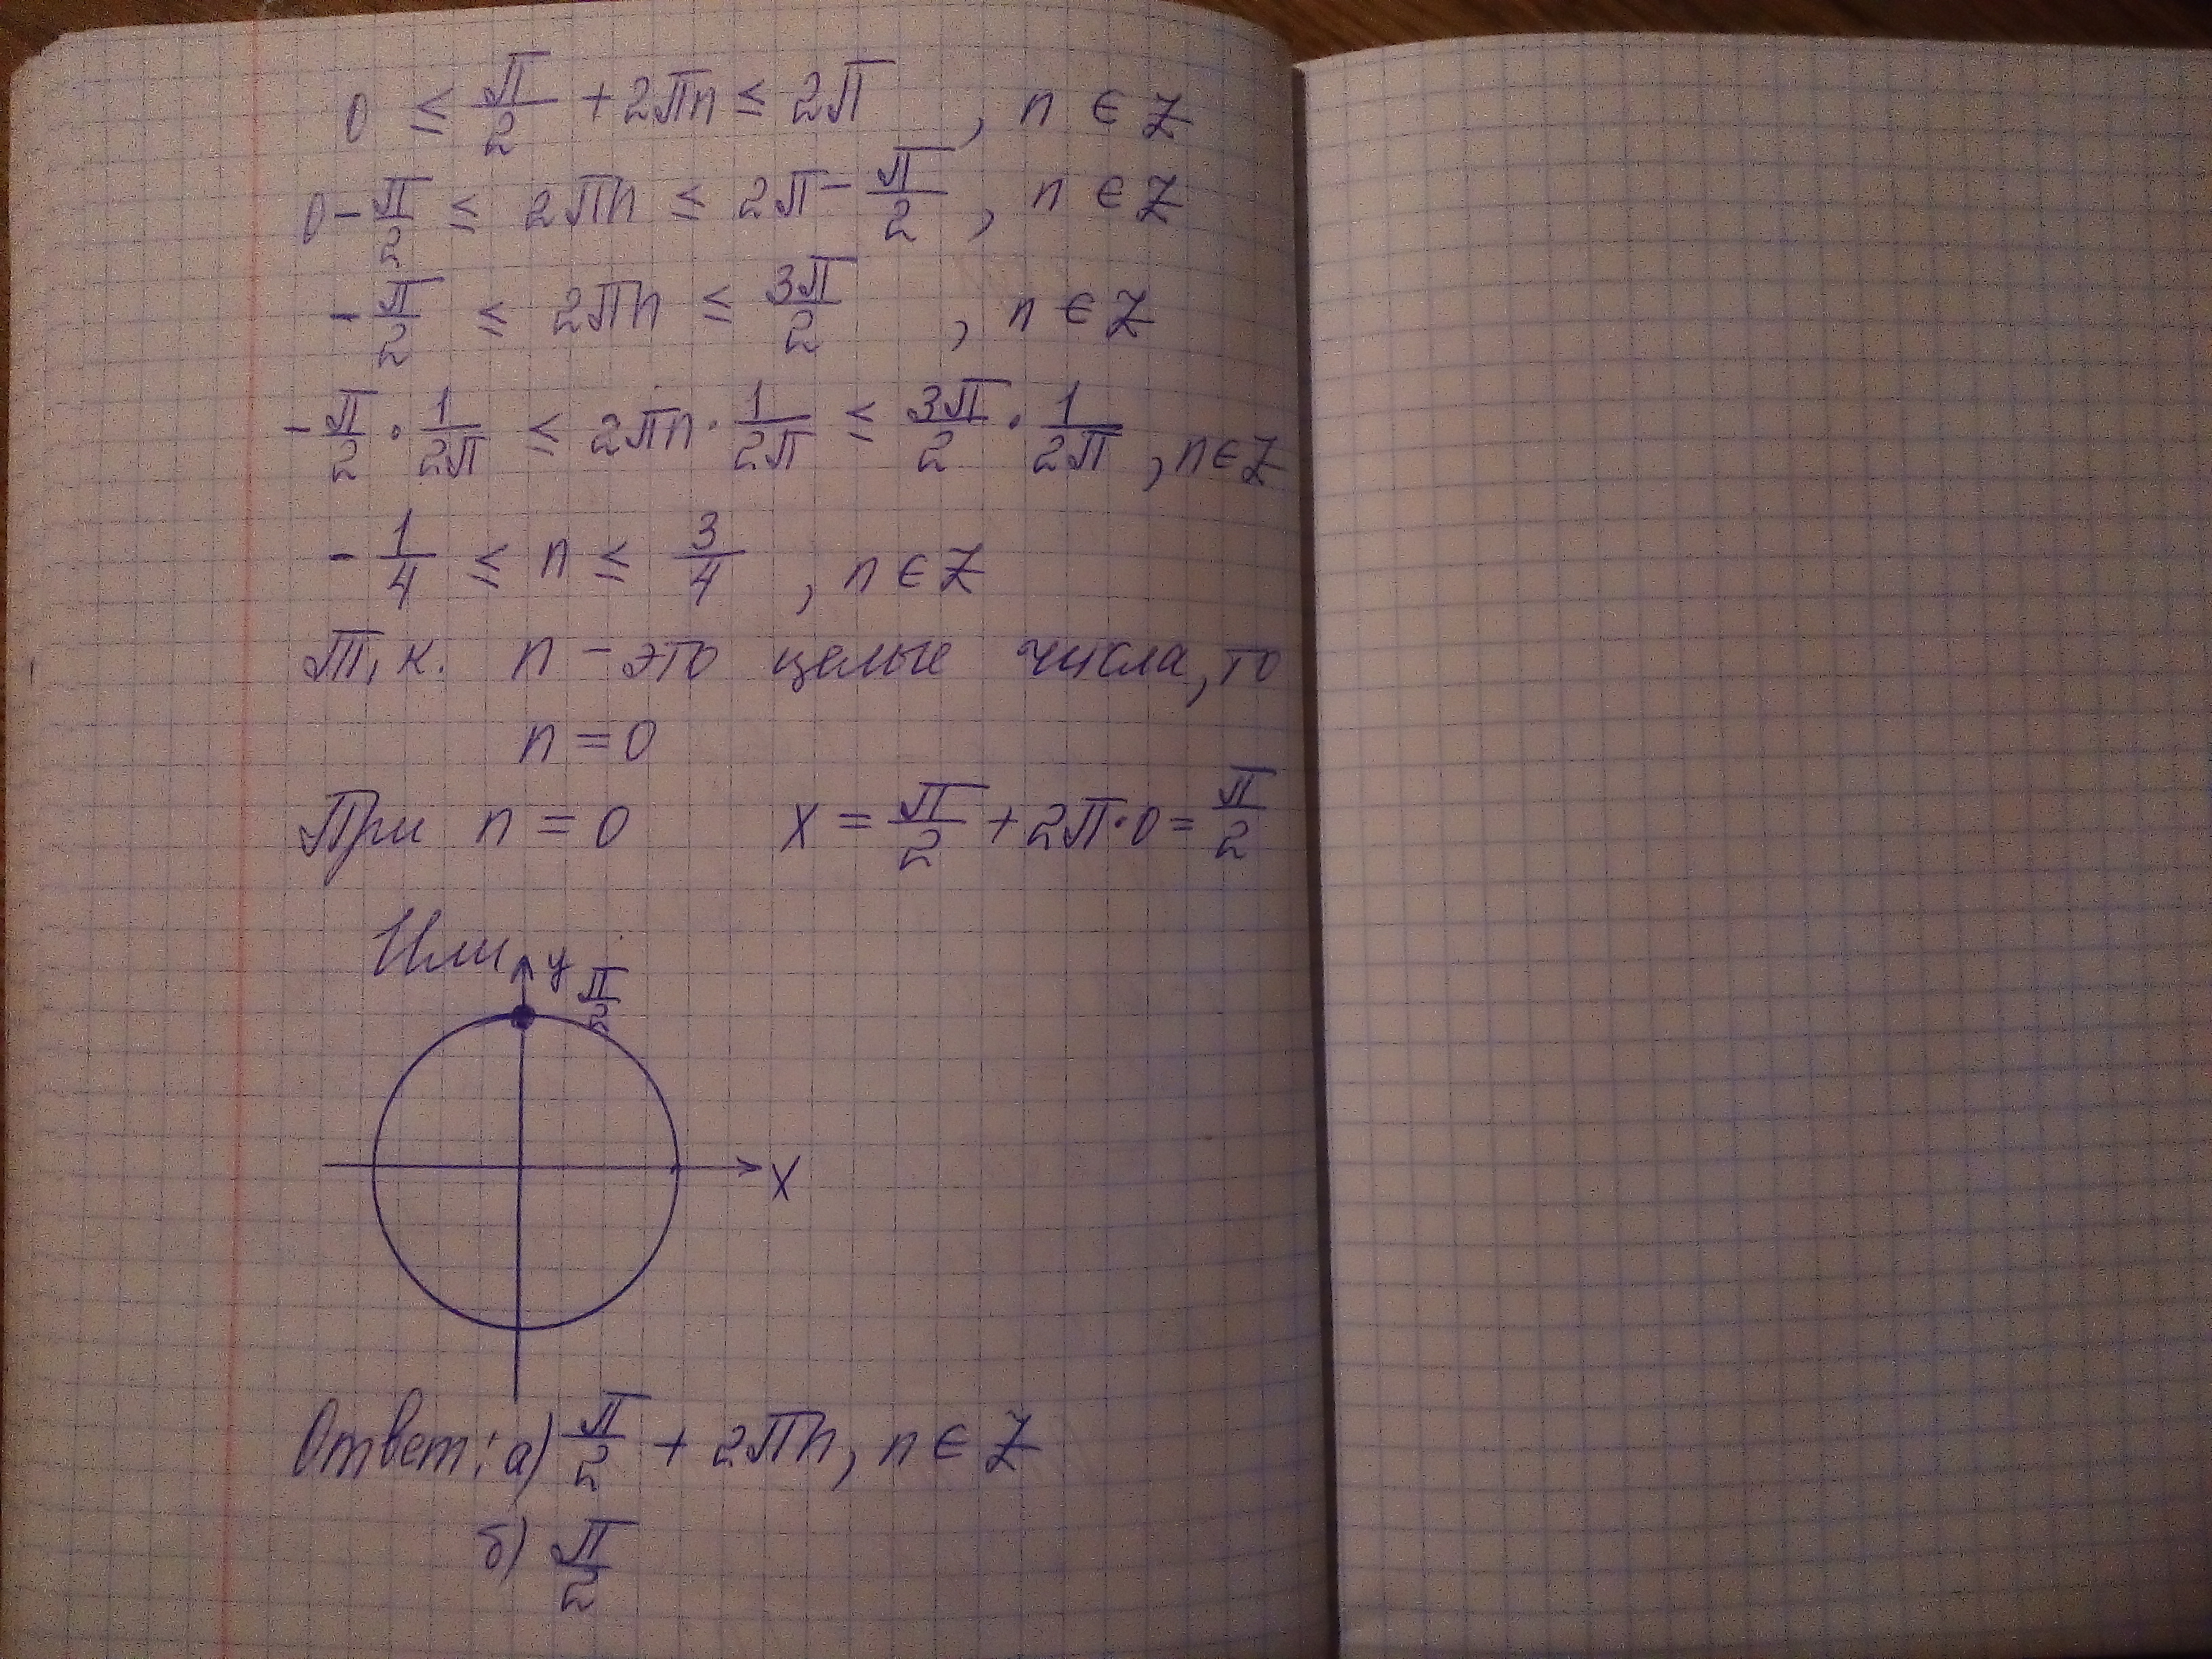 0 ≤ π/2 + 2πn ≤ 2π , n ∈ Z
0 - π/2 ≤ 2πn ≤ 2π - π/2 , n ∈ Z
- π/2 ≤ 2πn ≤ 3π/2 , n ∈ Z
- π/2 · 1/2π ≤ 2πn · 1/2π ≤ 3π/2 · 1/2π , n ∈ Z
- 1/4 ≤ n ≤ 3/4 , n ∈ Z
Т.к. n - это целые числа, то
n = 0
При n = 0 x = π/2 + 2π · 0 = π/2
Или
y π/2
x
Ответ: а) π/2 + 2πn, n ∈ Z
б) π/2